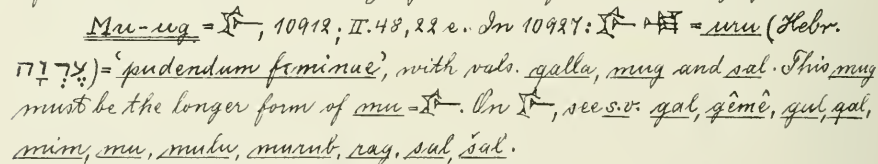 Mu-ug = 𒊩, 10912; II. 48, 22 e. In 10927: 𒊩 = uru (Hebr.
עֶרְוָה) = 'pudendum feminae', with vals. galla, mug and sal. This mug
must be the longer form of mu = 𒊩. On 𒊩, see s.v. gal, gêmê, gul, qal,
mim, mu, mulu, murub, rag, sal, šal.